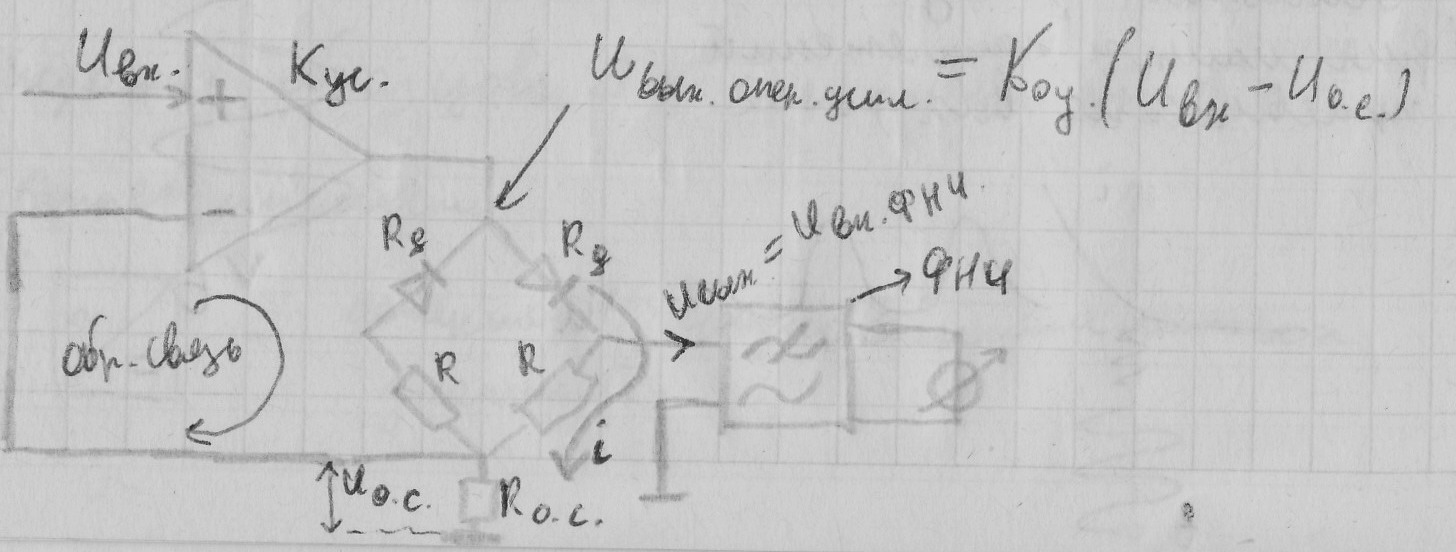 Uвх.
Kус.
Uвых. опер. усил. = Kоу. (Uвх - Uо.с.)
+
-
Rg
Rg
Uвых. = Uвх. ФНЧ.
ФНЧ
обр. связь
R
R
i
Uо.с.
Rо.с.